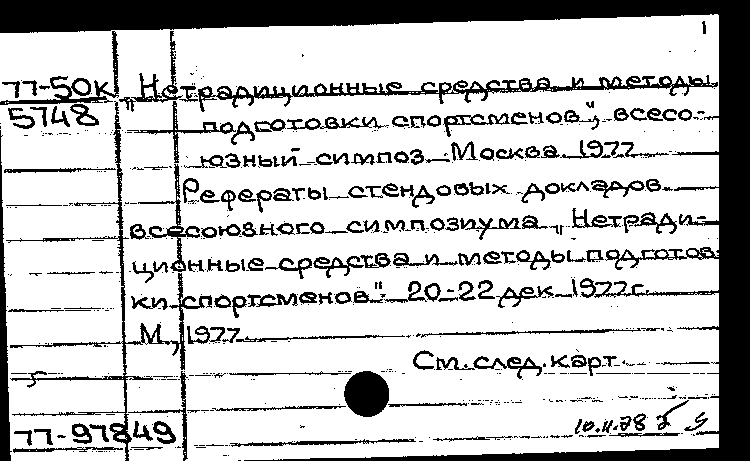 1
77-50к „Нетрадиционные средства и методы
5748 подготовки спортсменов", всесо-
юзный симпоз. Москва. 1977
Рефераты стендовых докладов
всесоюзного симпозиума „Нетради-
ционные средства и методы подготов-
ки спортсменов". 20-22 дек. 1977г.
М., 1977.
См. след. карт.
77-97849 10.11.78